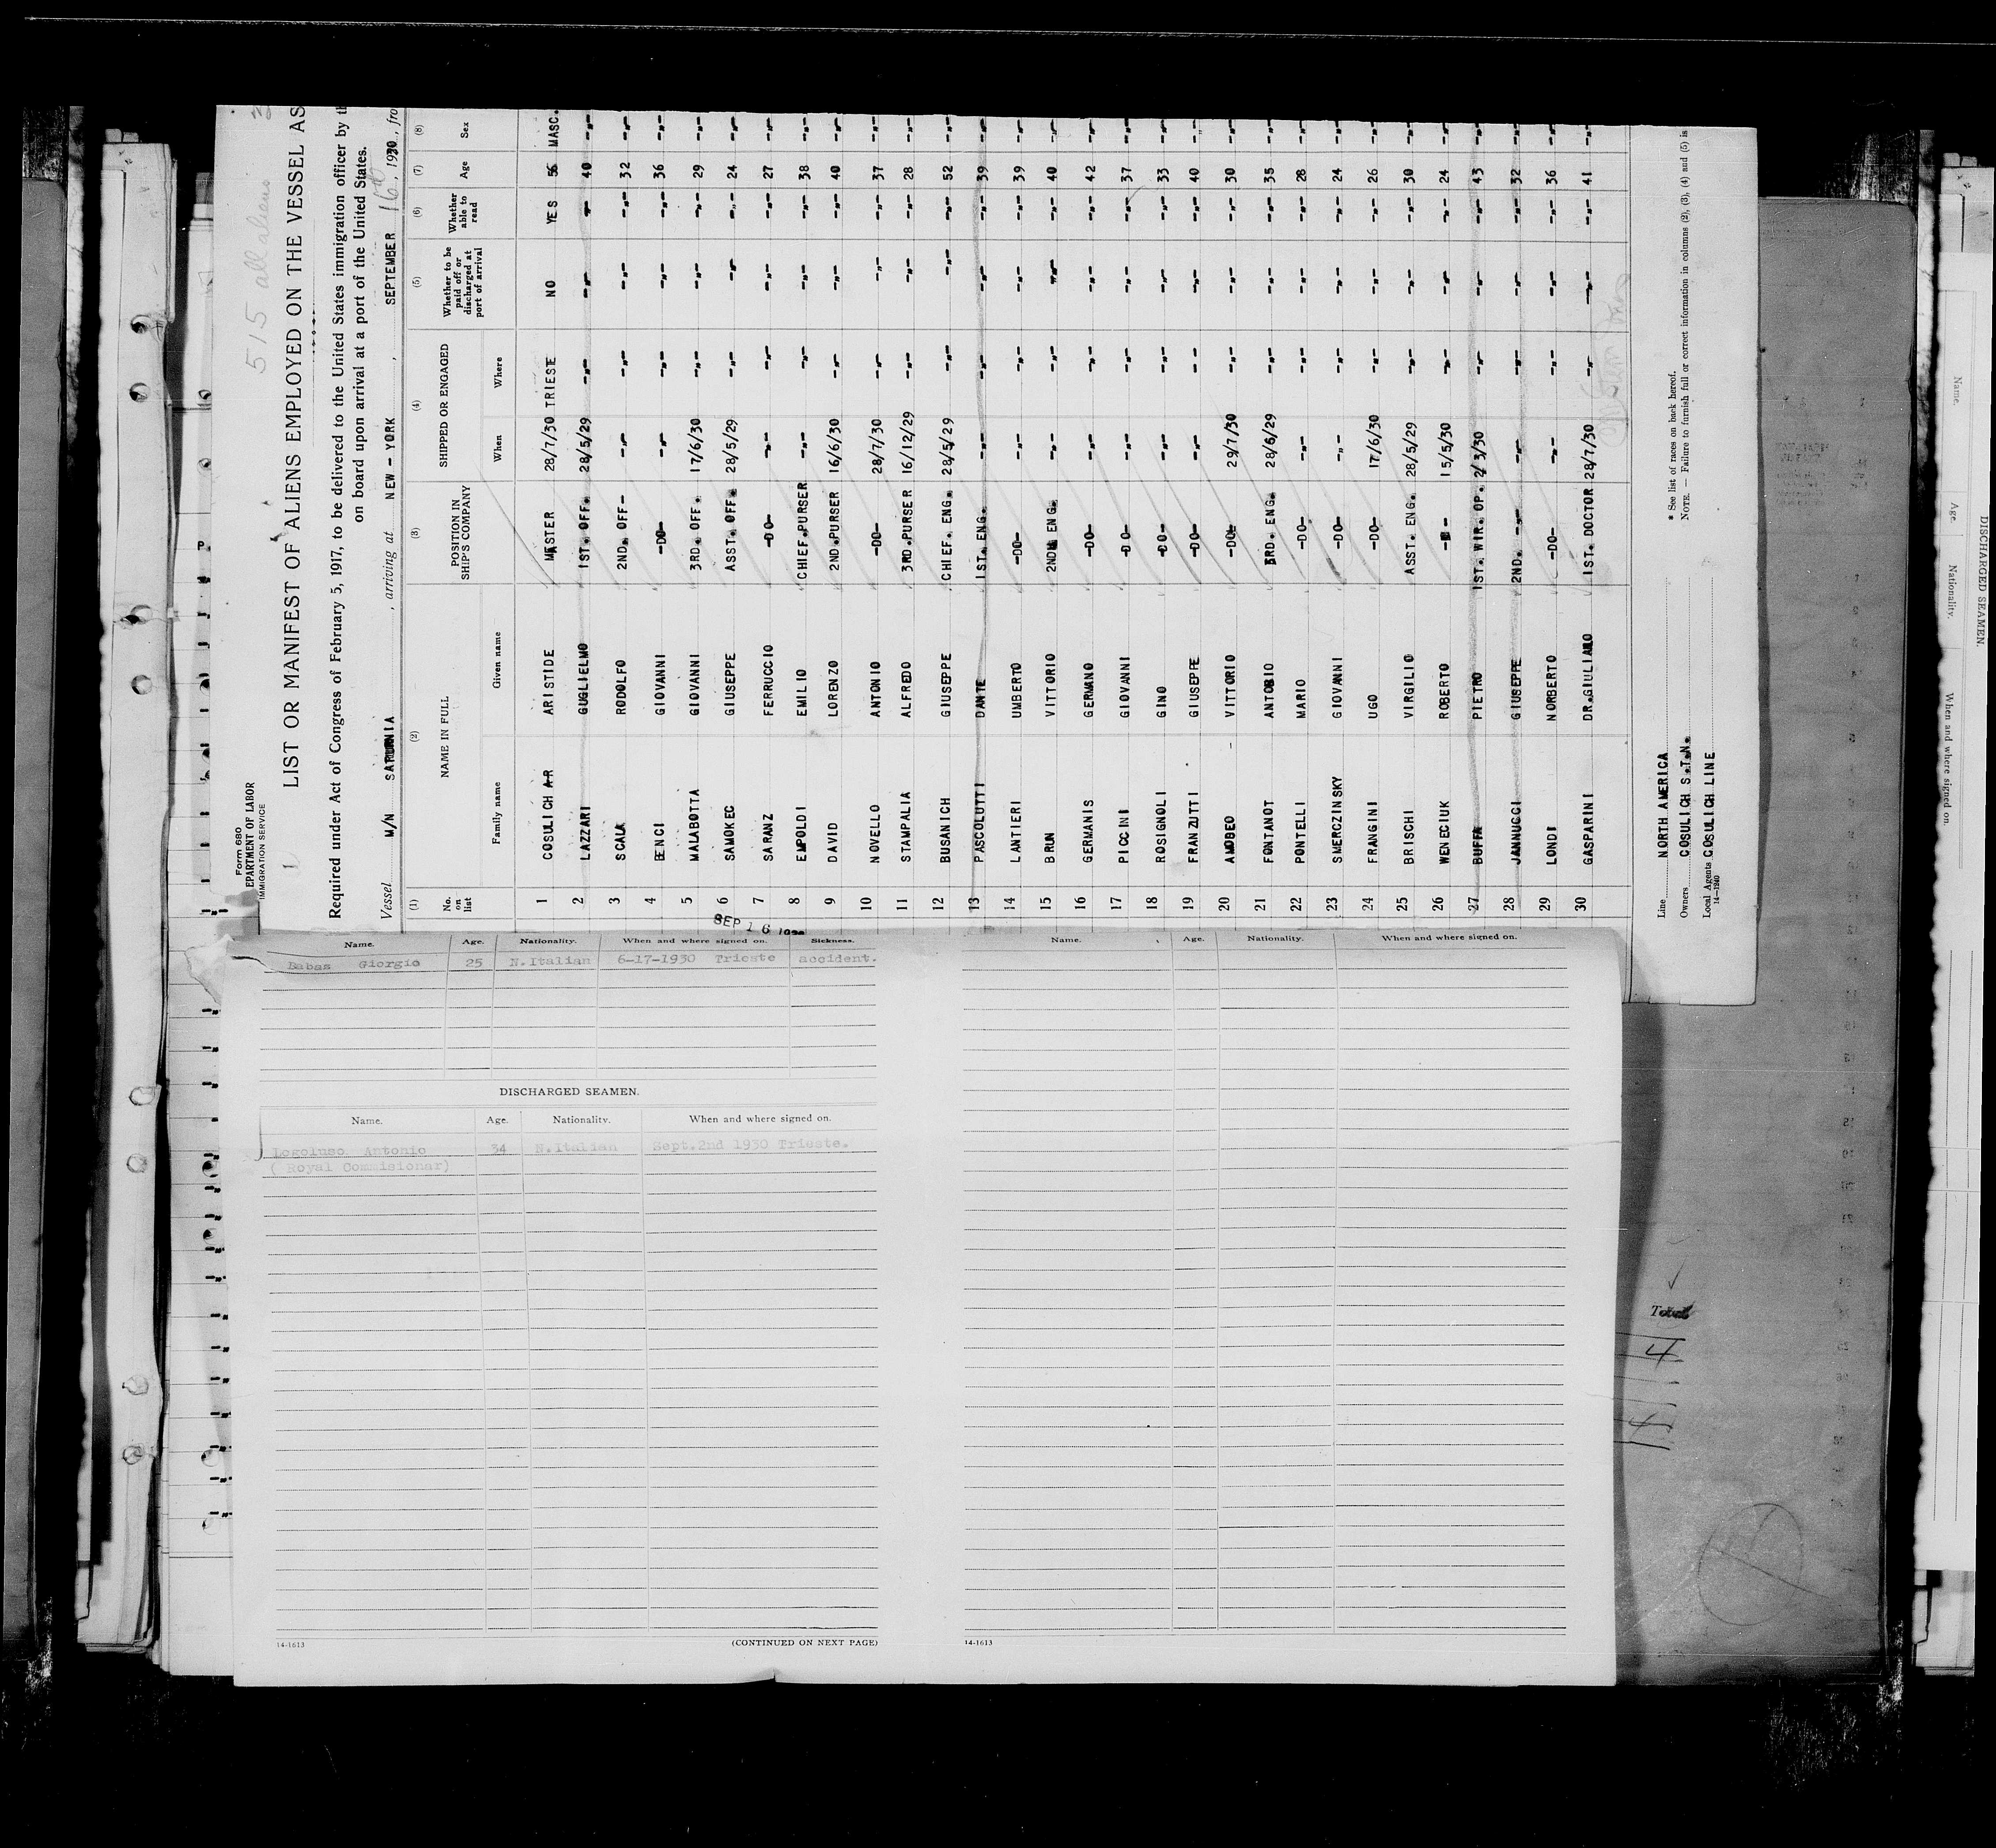 515 all aliens
Form 680
EPARTMENT OF LABOR
IMMIGRATION SERVICE
LIST OR MANIFEST OF ALIENS EMPLOYED ON THE VESSEL AS
Required under Act of Congress of February 5, 1917, to be delivered to the United States immigration officer by th
on board upon arrival at a port of the United States.
Vessel M/N SATURNIA, arriving at NEW-YORK, SEPTEMBER 16th, 1930, fro
(1) (2) (3) (4) (5) (6) (7) (8)
No. on list NAME IN FULL POSITION IN SHIP'S COMPANY SHIPPED OR ENGAGED Whether to be paid off or discharged at port of arrival Whether able to read Age Sex
Family name Given name When Where
1 COSULICH ARISTIDE MASTER 28/7/30 TRIESTE NO YES 56 MASC.
2 LAZZARI GUGLIELMO 1ST. OFF. 28/5/29 -"- -"- -"- 40 -"-
3 SCALA RODOLFO 2ND. OFF- -"- -"- -"- -"- 32 -"-
4 BENCI GIOVANNI -DO- -"- -"- -"- -"- 36 -"-
5 MALABOTTA GIOVANNI 3RD. OFF. 17/6/30 -"- -"- -"- 29 -"-
6 SAMOKEC GIUSEPPE ASST. OFF. 28/5/29 -"- -"- -"- 24 -"-
7 SARANZ FERRUCCIO -DO- -"- -"- -"- -"- 27 -"-
8 EMPOLDI EMILIO CHIEF.PURSER -"- -"- -"- -"- 38 -"-
9 DAVID LORENZO 2ND.PURSER 16/6/30 -"- -"- -"- 40 -"-
10 NOVELLO ANTONIO -DO- 28/7/30 -"- -"- -"- 37 -"-
11 STAMPALIA ALFREDO 3RD.PURSER 16/12/29 -"- -"- -"- 28 -"-
12 BUSANICH GIUSEPPE CHIEF. ENG. 28/5/29 -"- -"- -"- 52 -"-
13 PASCOLUTTI DANTE 1ST. ENG. -"- -"- -"- -"- 39 -"-
14 LANTIERI UMBERTO -DO- -"- -"- -"- -"- 39 -"-
15 BRUN VITTORIO 2ND. ENG. -"- -"- -"- -"- 40 -"-
16 GERMANIS GERMANO -DO- -"- -"- -"- -"- 42 -"-
17 PICCINI GIOVANNI -DO- -"- -"- -"- -"- 37 -"-
18 ROSIGNOLI GINO -DO- -"- -"- -"- -"- 33 -"-
19 FRANZUTTI GIUSEPPE -DO- -"- -"- -"- -"- 40 -"-
20 AMODEO VITTORIO -DO- 29/7/30 -"- -"- -"- 30 -"-
21 FONTANOT ANTONIO 3RD. ENG. 28/6/29 -"- -"- -"- 35 -"-
22 PONTELLI MARIO -DO- -"- -"- -"- -"- 28 -"-
23 SMERCZINSKY GIOVANNI -DO- -"- -"- -"- -"- 24 -"-
24 FRANGINI UGO -DO- 17/6/30 -"- -"- -"- 26 -"-
25 BRISCHI VIRGILIO ASST. ENG. 28/5/29 -"- -"- -"- 30 -"-
26 WENECIUK ROBERTO 15/5/30 -"- -"- -"- 24 -"-
27 BUFFA PIETRO 1ST. WIR. OP. 2/3/30 -"- -"- -"- 43 -"-
28 JANNUCCI GIUSEPPE 2ND. -"- -"- -"- -"- -"- 32 -"-
29 LONDI NORBERTO -DO- -"- -"- -"- -"- 36 -"-
30 GASPARINI DR.GIULIANO 1ST. DOCTOR 28/7/30 -"- -"- -"- 41 -"-
Line NORTH AMERICA
Owners COSULICH S.T.N.
Local Agents COSULICH LINE
14-1240
* See list of races on back hereof.
NOTE. — Failure to furnish full or correct information in columns (2), (3), (4) and (5) is
SEP 16
Name. Age. Nationality. When and where signed on. Sickness.
Babas Giorgio 25 N.Italian 6-17-1930 Trieste accident.
DISCHARGED SEAMEN.
Name. Age. Nationality. When and where signed on.
Logoluso Antonio 34 N.Italian Sept.2nd 1930 Trieste.
( Royal Commisionar)
14-1613
(CONTINUED ON NEXT PAGE)
Name. Age. Nationality. When and where signed on.
14-1613
Total
4
4
DISCHARGED SEAMEN.
Name. Age. Nationality. When and where signed on.